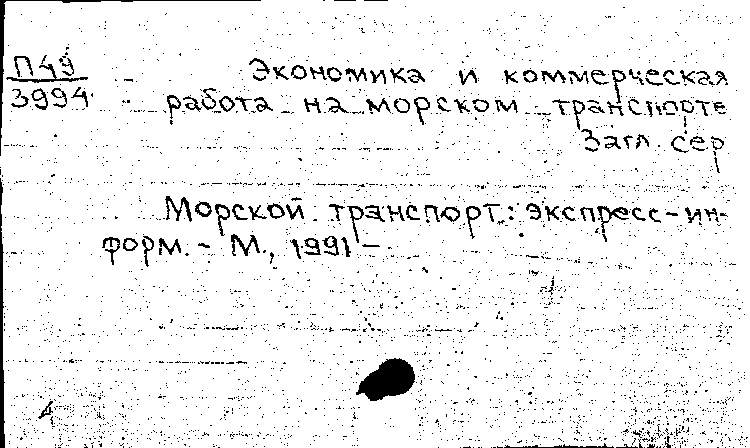 П49
3994
Экономика и коммерческая
работа на морском транспорте
Загл. сер
Морской транспорт: экспресс-ин-
форм. - М., 1991 -